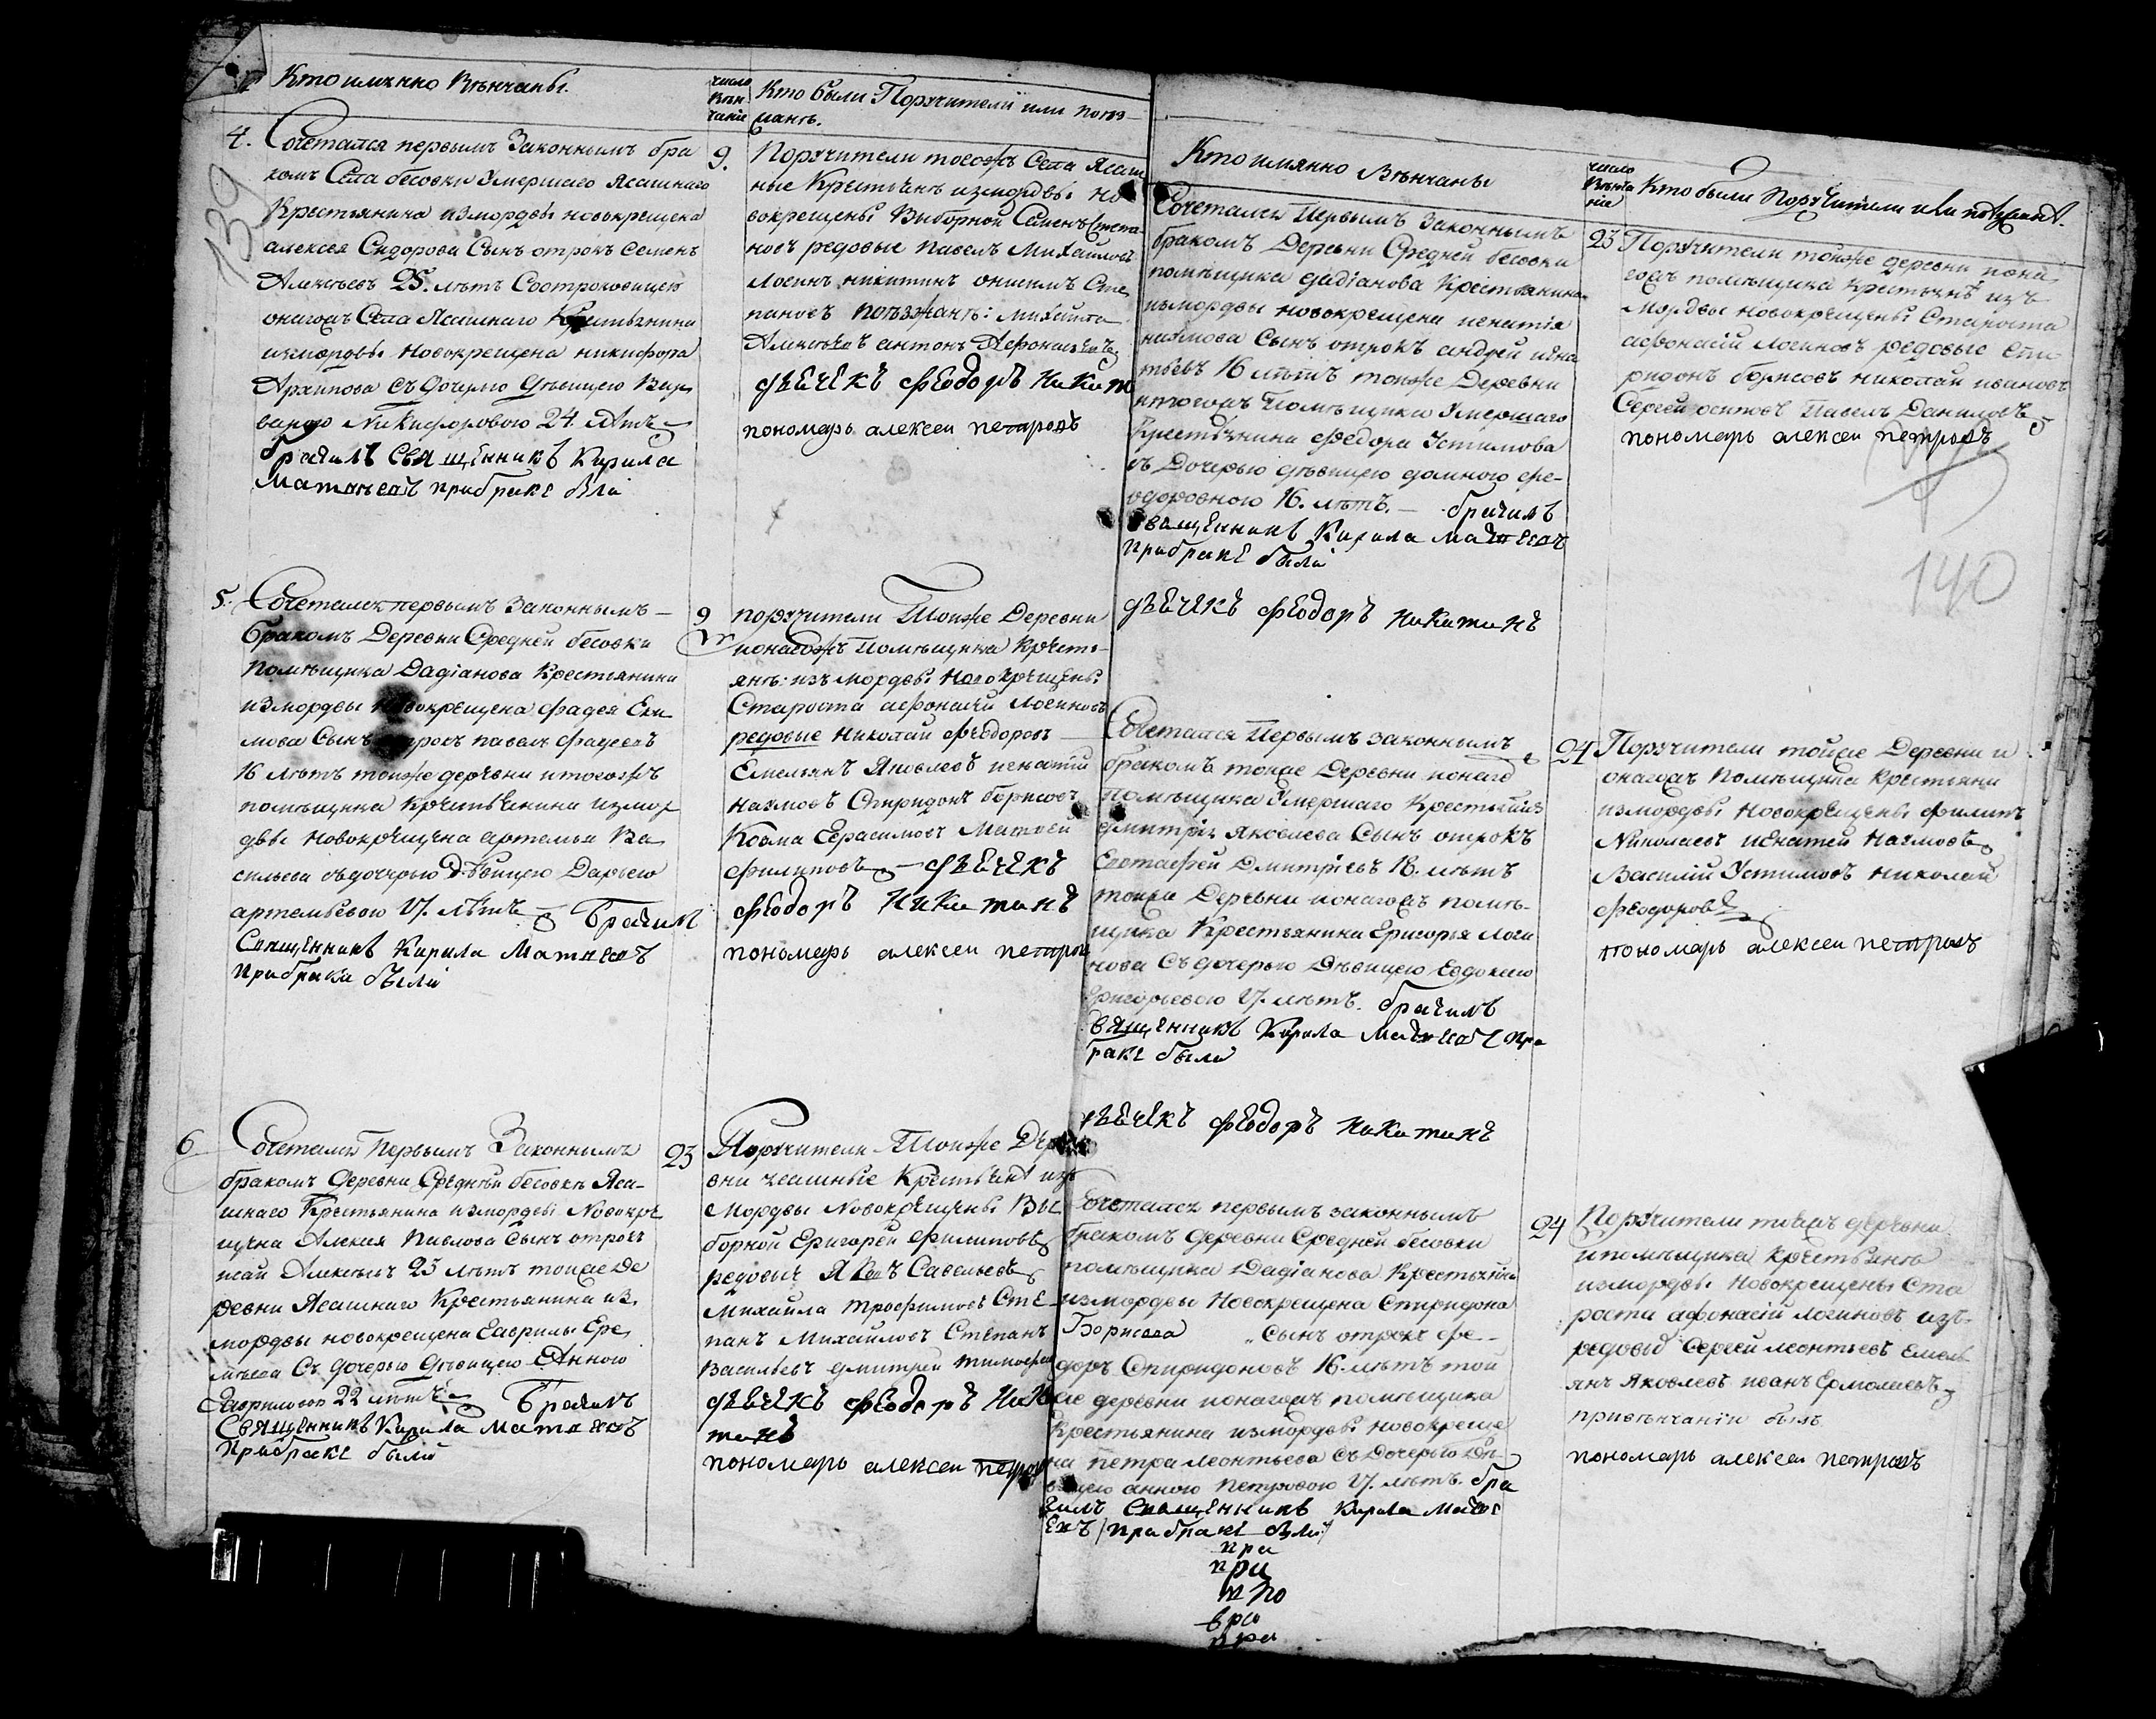 Кто имянно Венчаны.
число
вен
чанiе
Кто были Поручители или поез
жанъ.
139
4. Сочетался первымъ Законнымъ бра
комъ Села бесовки Умершаго Ясашнаго
Крестьянина измордвы новокрещена
алексея Сидорова Сынъ отрокъ Семенъ
Алексеевъ 25. летъ Соотроковицею
оногожъ Села Ясашнаго Крестьянина
измордвы Новокрещена никифора
Архипова съ Дочерью Девицею Вар
варою Никифоровою 24. летъ
брачилъ Священникъ Кирила
Матвеевъ прибраке были
9. Поручители тогожъ Села Ясаш
ные Крестьянъ измордвы но
вокрещены Выборной Семенъ Степа
новъ редовые павелъ Михаиловъ
логинъ никитинъ онисимъ Сте
пановъ поезжанъ: михайла
Алексеевъ антонъ Афонасьевъ
дьечекъ феодоръ никит
пономарь алексеи петровъ
5. Сочетался первымъ Законнымъ
бракомъ Деревни Средней бесовки
помещика Дадiанова Крестьянина
измордвы новокрещена фадея Еки
мова Сынъ отрокъ павелъ фадеевъ
16 летъ тоиже деревни итогожъ
помещика Крестьянина измор
двы новокрещена артемья Ва
сильева сьдочерью Девицею Дарьею
артемьевою 17. летъ Брачилъ
Священникъ Кирила Матвеевъ
прибраки были
9 поручители Тоиже Деревни
ионагожъ Помещика Кресть
янъ: изъ мордвы Новокрещены
Староста афонасiй логиновъ
редовые Николай феодоровъ
Емельянъ Яковлевъ игнатiй
наумовъ Спиридонъ борисовъ
Козма Герасимовъ Матвей
филиповъ дьечекъ
феодоръ никитинъ
пономарь алексеи петров
6 Сочетался Первымъ Законнымъ
бракомъ деревни Средней бесовки Яса
шнаго Крестьянина измордвы Новокре
щена Алексея Павлова Сынъ отрокъ
исай Алексеевъ 23 летъ тоиже де
ревни Ясашнаго Крестьянина из
мордвы новокрещена Гаврилы Ере
меева Съ дочерью Девицею Анною
Гавриловою 22 летъ Брачилъ
Священникъ Кирила Матвеевъ
Прибраке были
23 Поручители Тоиже Дере
вни ясашные Крестьянъ изъ
Мордвы Новокрещены Вы
борной Григорей филиповъ
редовые Яковъ Савельевъ
Михаила трофимовъ Сте
панъ Михайловъ Степанъ
Васильевъ дмитрей тимофеев
дьечекъ феодоръ ники
тинъ
пономарь алексеи петров
Кто имянно Венчаны
число
венча
нiе
Кто были Поручители или поезжанъ.
Сочетался Первымъ Законнымъ
бракомъ Деревни Средней бесовки
помещика дадiанова Крестьянина
измордвы новокрещена игнатiя
наумова Сынъ отрокъ андрей игна
тьевъ 16 летъ тоиже Деревни
итогожъ Помещика Умершаго
Крестьянина федора Устимова
съ Дочерью девицею домною фе
одоровною 16. летъ. брачилъ
священникъ Кирила Матвеевъ
прибраке были
дьечекъ феодоръ никитинъ
23 Поручители тоиже деревни иона
гожъ помещика крестьянъ изъ
мордвы новокрещены Староста
афонасiй логиновъ редовые Спи
ридонъ борисовъ николай ивановъ
Сергей осиповъ Павелъ Даниловъ
пономарь алексеи петровъ
140
Сочетался Первымъ законнымъ
бракомъ тоиже Деревни ионаго
Помещика Умершаго Крестьянина
дмитрiя яковлева Сынъ отрокъ
Евстафей Дмитрiевъ 18. летъ
тоиже Деревни ионагожъ поме
щика Крестьянина Григорья логи
нова Съ дочерью Девицею Евдокиею
Григорьевою 17. летъ. брачилъ
священникъ Кирила Матвеевъ при
браке были
дьечекъ феодоръ никитинъ
24 Поручители тоиже Деревни и
онагожъ Помещика крестьяни
измордвы Новокрещены филипъ
Николаевъ игнатей Наумовъ
Василiй Устимовъ николай
феодоровъ
пономарь алексеи петровъ
Сочетался первымъ законнымъ
бракомъ деревни Средней бесовки
помещика Дадiанова Крестьянина
измордвы Новокрещена Спиридона
Борисова Сынъ отрокъ фе
доръ Спиридоновъ 16. летъ той
же деревни ионагожъ помещика
Крестьянина измордвы новокреще
на петра леонтьева Съ Дочерью Де
вицею анною Петровою 17. летъ. бра
чилъ Священникъ Кирила Матве
евъ прибраке были
при
при
п по
вро
при
24 Поручители тоежъ деревни
ипомещика крестьянъ
измордвы Новокрещены Ста
роста афонасiй логиновъ изъ
редовы Сергей леонтьевъ Емель
янъ Яковлевъ иванъ Ермолаевъ
привенчанiи былъ
пономарь алексеи петровъ